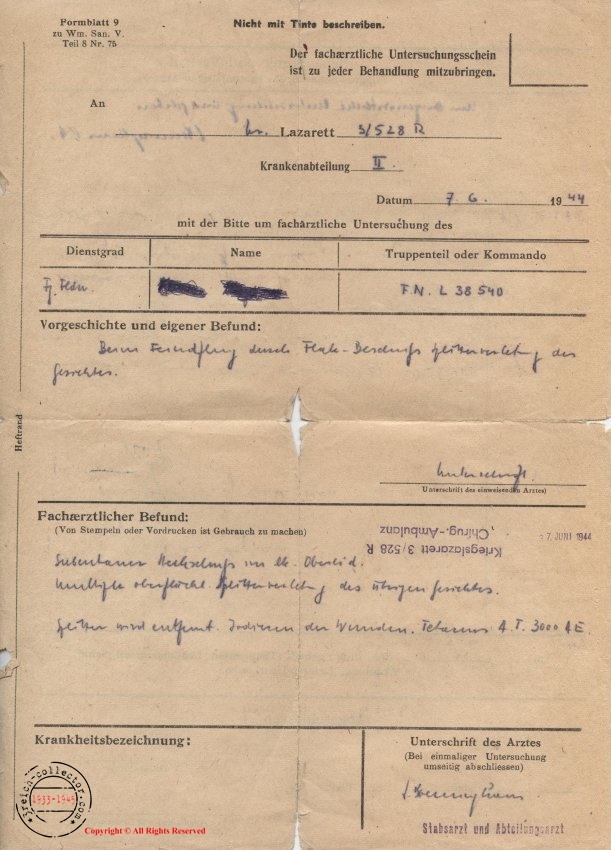 Formblatt 9
zu Wm. San. V.
Teil 8 Nr. 75
Nicht mit Tinte beschreiben.
Der fachærztliche Untersuchungsschein
ist zu jeder Behandlung mitzubringen.
An
Kr. Lazarett 3/528 R
Krankenabteilung II.
Datum 7. 6. 1944
mit der Bitte um fachärztliche Untersuchung des
Dienstgrad Name Truppenteil oder Kommando
Fj. Feldw. F.N. L 38540
Vorgeschichte und eigener Befund:
Beim Feindflug durch Flak-Beschuß Splitterverletzung des
Gesichtes.
Heftrand
Unterschrift
Unterschrift des einweisenden Arztes)
Fachærztlicher Befund:
(Von Stempeln oder Vordrucken ist Gebrauch zu machen)
Kriegslazarett 3/528 R
Chirug.-Ambulanz
27. JUNI 1944
Subcutaner Steckschuß im lk. Oberlid.
Multiple oberflächl. Splitterverletzung des übrigen Gesichtes.
Splitter wird entfernt. Jodieren der Wunden. Tetanus A.T. 3000 A.E.
Krankheitsbezeichnung:
Unterschrift des Arztes
(Bei einmaliger Untersuchung
umseitig abschliessen)
Stabsarzt und Abteilungsarzt
3reich-collector.com
1933-1945
Copyright © All Rights Reserved